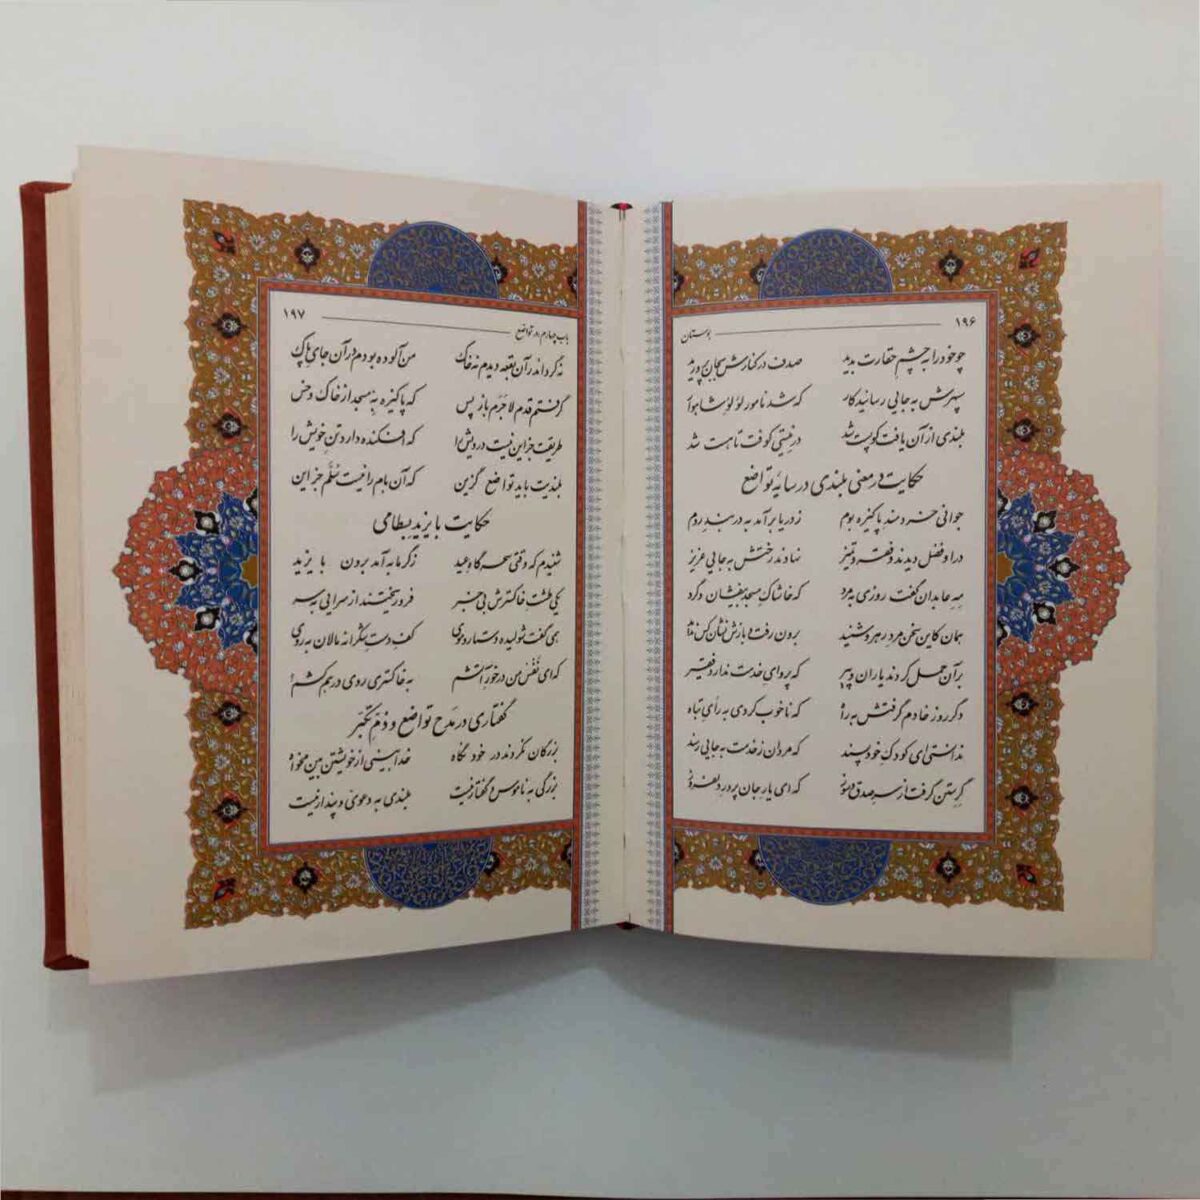 ۱۹۶ بوستان
چو خود را به چشم حقارت بدید صدف در کنارش به جان پرورید
سپهرش به جایی رسانید کار که شد نامور لؤلؤ شاهوار
بلندی از آن یافت کو پست شد در نیستی کوفت تا هست شد
حکایت در معنی بلندی در سایهٔ تواضع
جوانی خردمند پاکیزه بوم ز دریا برآمد به دربند روم
در او فضل دیدند و فقر و تمیز نهادند رختش به جایی عزیز
مه عابدان گفت روزی به مرد که خاشاک مسجد بیفشان و گرد
همان کاین سخن مرد رهرو شنید برون رفت و بازش نشان کس ندید
بر آن حمل کردند یاران و پیر که پروای خدمت ندارد فقیر
دگر روز خادم گرفتش به راه که ناخوب کردی به رأی تباه
ندانستی ای کودک خودپسند که مردان ز خدمت به جایی رسند
گرستن گرفت از سر صدق و سوز که ای یار جان پرور دلفروز
باب چهارم در تواضع ۱۹۷
نه گرد اندر آن بقعه دیدم نه خاک من آلوده بودم در آن جای پاک
گرفتم قدم لاجرم باز پس که پاکیزه به مسجد از خاک و خس
طریقت جز این نیست درویش را که افکنده دارد تن خویش را
بلندیت باید تواضع گزین که آن بام را نیست سُلَّم جز این
حکایت بایزید بسطامی
شنیدم که وقتی سحرگاه عید ز گرمابه آمد برون بایزید
یکی طشت خاکسترش بی‌خبر فرو ریختند از سرایی به سر
همی گفت شولیده دستار و موی کف دست شکرانه مالان به روی
که ای نَفْس من در خور آتشم به خاکستری روی در هم کشم؟
گفتاری در مدح تواضع و ذمّ تکبّر
بزرگان نکردند در خود نگاه خدابینی از خویشتن بین مخواه
بزرگی به ناموس و گفتار نیست بلندی به دعوی و پندار نیست